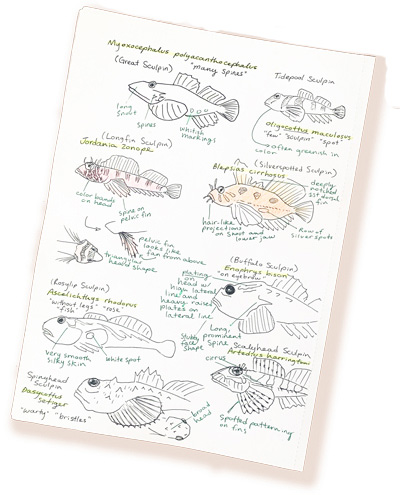 Myoxocephalus polyacanthocephalus
(Great Sculpin) "many spines"
long
snout
spines
whitish
markings
Tidepool Sculpin
oligocottus maculosus
"few" "sculpin" "spot"
often greenish in
color
(Longfin Sculpin)
Jordania zonope
color bands
on head
(Silverspotted Sculpin)
Blepsias cirrhosus
deeply
notched
1st dorsal
fin
hair-like
projections
on snout and
lower jaw
Row of
silver spots
spine on
pelvic fin
pelvic fin
looks like
fan from above
triangular
head shape
(Buffalo Sculpin)
Enophrys bison
"on eyebrow"
plating
on
head w/
high lateral
line and
heavy raised
plates on
lateral line
stubby
face
shape
Long,
prominent
spine
(Rosylip Sculpin)
Ascelichthys rhodorus
"without legs" "rose"
"fish"
very smooth
silky skin
white spot
Scalyhead Sculpin
Artedius harringtoni
cirrus
Spotted patterning
on fins
Spinyhead
Sculpin
Dasycottus
setiger
"warty" "bristles"
broad
head